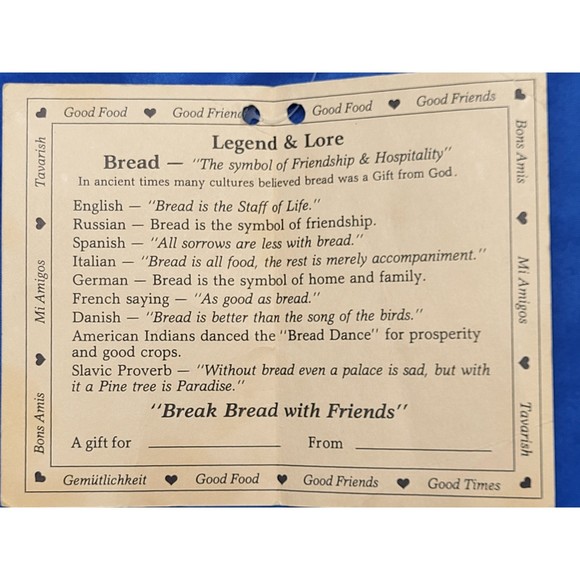 Good Food ♥ Good Frien Good Food ♥ Good Friends
Legend & Lore
Bread — "The symbol of Friendship & Hospitality"
In ancient times many cultures believed bread was a Gift from God.
English — "Bread is the Staff of Life."
Russian — Bread is the symbol of friendship.
Spanish — "All sorrows are less with bread."
Italian — "Bread is all food, the rest is merely accompaniment."
German — Bread is the symbol of home and family.
French saying — "As good as bread."
Danish — "Bread is better than the song of the birds."
American Indians danced the "Bread Dance" for prosperity
and good crops.
Slavic Proverb — "Without bread even a palace is sad, but with
it a Pine tree is Paradise."
"Break Bread with Friends"
A gift for From
Gemütlichkeit ♥ Good Food ♥ Good Friends ♥ Good Times
Tavarish
Mi Amigos
Bons Amis
Bons Amis
Mi Amigos
Tavarish